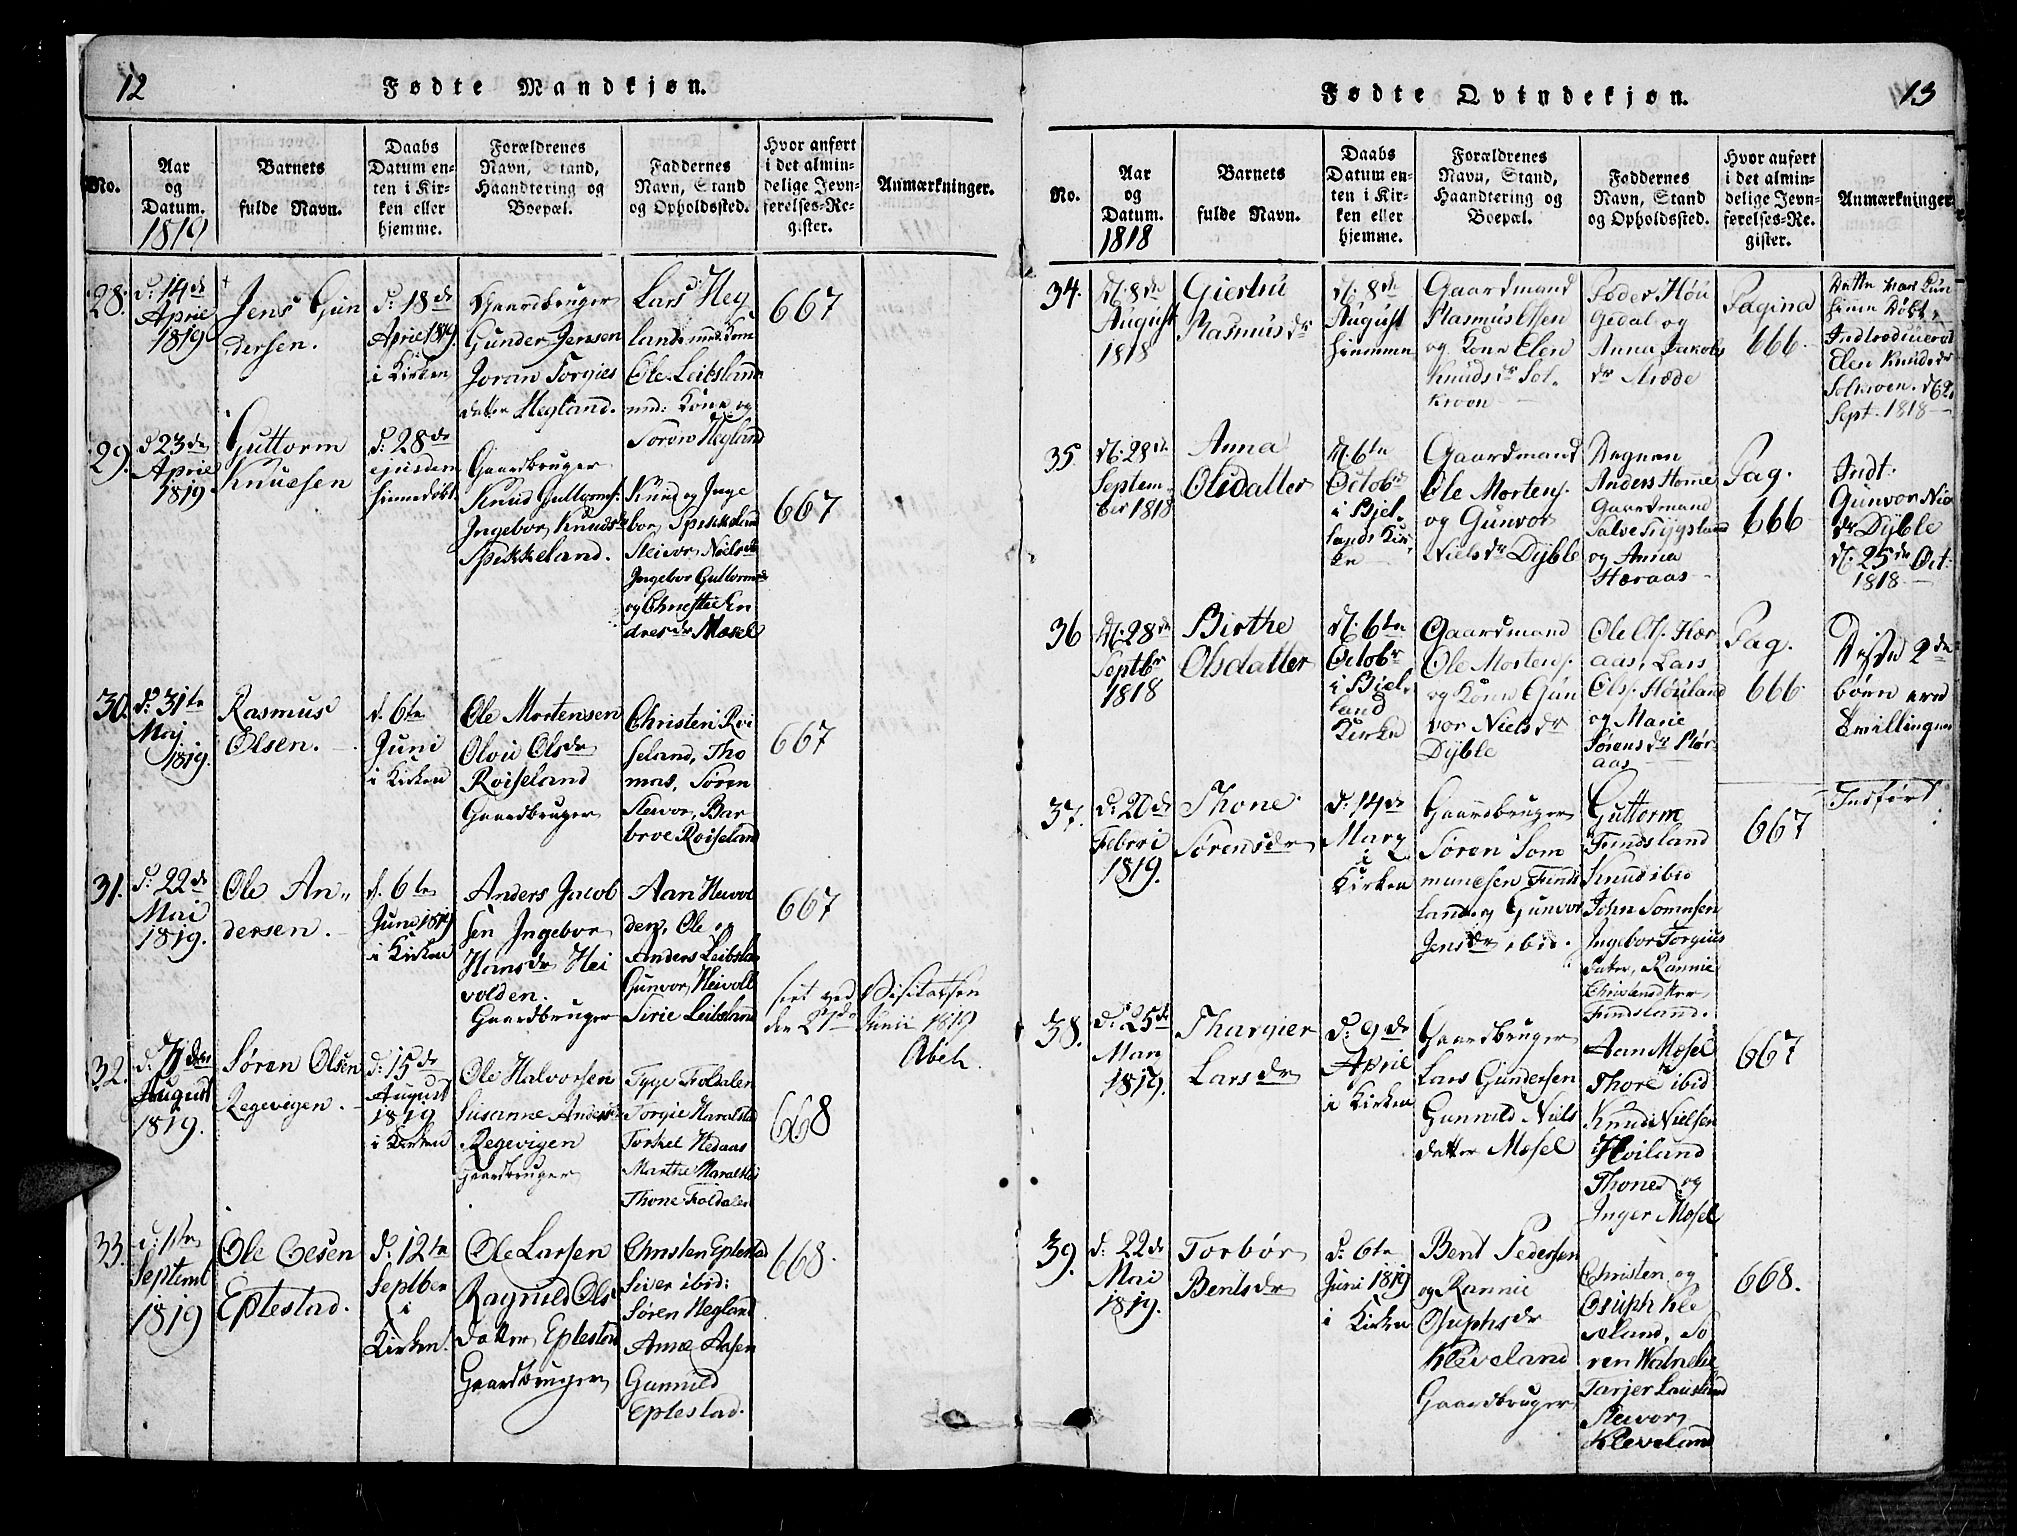 12
Fødte Mandkjøn.
No.
Aar
og
Datum.
1819
Barnets
fulde Navn.
Daabs
Datum en-
ten i Kir-
ken eller
hjemme.
Forældrenes
Navn, Stand,
Haandtering og
Boepæl.
Faddernes
Navn, Stand
og Opholdssted.
Hvor anført
i det almin-
delige Jevn-
førelses-Re-
gister.
Anmærkninger.
28.
d: 14de
April
1819
Jens Gun
dersen.
d: 18de
April 1819
i Kirken
Gaardbruger
Gunder Jensen
Joran Torgies
datter Hegland.
Lars Heg
land med Kone
Ole Leibsland
med: Kone og
Soren Hegland
667
29.
d 23de
April
1819
Guttorm
Knudsen
d: 28de
ejusdem
hiemedøbt
Gaardbruger
Knud Guttorms:
Ingebor Knudsdr
Spikkeland.
Knud og Inge
bor Spikkeland
Steivor Nielsdr
Ingebor Guttormsdr
og Christie En
dresdr Mosel
667
30.
d: 31te
Maj
1819.
Rasmus
Olsen.
d. 6te
Juni
i Kirken
Ole Mortensen
Olviu Olsdr
Roiseland
Gaardbruger
Christen Roi
seland, Tho
mas, Søren
Steivor, Bar
broe Roiseland
667
31.
d: 22de
Mai
1819.
Ole An-
dersen.
d. 6te
Juni 1819
i Kirken
Anders Jacob
sen Ingebor
Hansdr Hei
volden.
Gaardbruger
Aan Heivol
den, Ole og
Anders Leibsla
Gunvor Heivoll
Sirie Leibsland
667
seet ved Visitatsen
den 21de Junii 1819
Abel.
32.
August
1819.
Søren Olsen
Regevigen.
d: 15de
August
1819
i Kirken
Ole Halvorsen
Susanne Andersdr
Regevigen
Gaardbruger
Tyge Foldalen
Torgie Haralstad
Torkel Hedaas
Marthe Haralstad
Thone Foldalen
668
33.
d: 1ste
Septemb
1819
Ole Olesen
Eptestad.
d: 12te
Septber
i
Kirken.
Ole Larsen
Ragnild Ols
datter Eptestad
Gaardbruger
Christen Eptestad
Siver ibid:
Søren Hegland
Anne Aasen
Gunnild
Eptestad.
668.
13
Fødte Qvindekjøn.
No.
Aar
og
Datum.
1818
Barnets
fulde Navn.
Daabs
Datum en-
ten i Kir-
ken eller
hjemme.
Forældrenes
Navn, Stand,
Haandtering og
Boepæl.
Faddernes
Navn, Stand
og Opholdssted.
Hvor anført
i det almin-
delige Jevn-
førelses-Re-
gister.
Anmærkninger
34.
d: 8de
August
1818
Giertru
Rasmusdr
d: 8de
August
hiemme
Gaardmand
Rasmus Essen
og Kone Elen
Knudsdr Sol-
kroen
Peder Høu
gedal og
Anna Jakobs
dr Mæde
Pagina
666
Dette har Kun
hieme Døbt,
Indtroduceret
Elen Knudsdr
Solkroen. d: 6te
Sept. 1818
35
d: 28de
Septem-
ber 1818
Anna
Olsdatter
d: 6te
Octobr
i Biel-
lands Kir-
ke
Gaardmand
Ole Mortens.
og Gunvor
Nielsdr Dyble
Dagnen
Anders Homme
Gaardmand
Salve Trygsland
og Anna
Heraas
Pag.
666
Indt:
Gunvor Niels
dr Dyble
d: 25de Oct:
1818
36
d: 28de
Septbr
1818
Birthe
Olsdatter
d: 6te
Octobr
i Biel-
land
Kirke
Gaardmand
Ole Mortens.
og Kone Gun
vor Nielsdr
Dyble
Ole Ols. Hær
aas, Lars
Ols. Høuland
og Marie
Sørensdr Hær
aas
Pag.
666
Disse 2de
børn ere
Tvillinger
37.
d: 20de
Febrri
1819.
Thone
Sørensdr
d: 14de
Marz
i
Kirken
Gaardbruger
Søren Tom
mansen Funds
land og Gunvor
Jensdr ibid.
Guttorm
Fundsland
Knud ibid
John Tommsen
Ingebor Torgius
dater, Rannie
Fundsland.
667
Indført
38.
d: 25de
Mar
1819.
Thargier
Larsdr
d: 9de
April
i Kirken
Gaardbruger
Lars Gundersen
Gunnild Niels
datter Mosel
Aan Mosel
Thore ibid
Knud Nielsen
Hviland
Thone og
Inger Mosel
667
39.
d: 22de
Mai
1819.
Torbør
Bentsdr
d: 6te
Juni 1819
i Kirken
Bent Pedersen
og Rannie
Osuphsdr
Kleveland
Gaardbruger
Christen og
Osuph Kle
veland, Sø
ren Watnelie
Tarjer Lausland
Steivor
Kleveland
668.